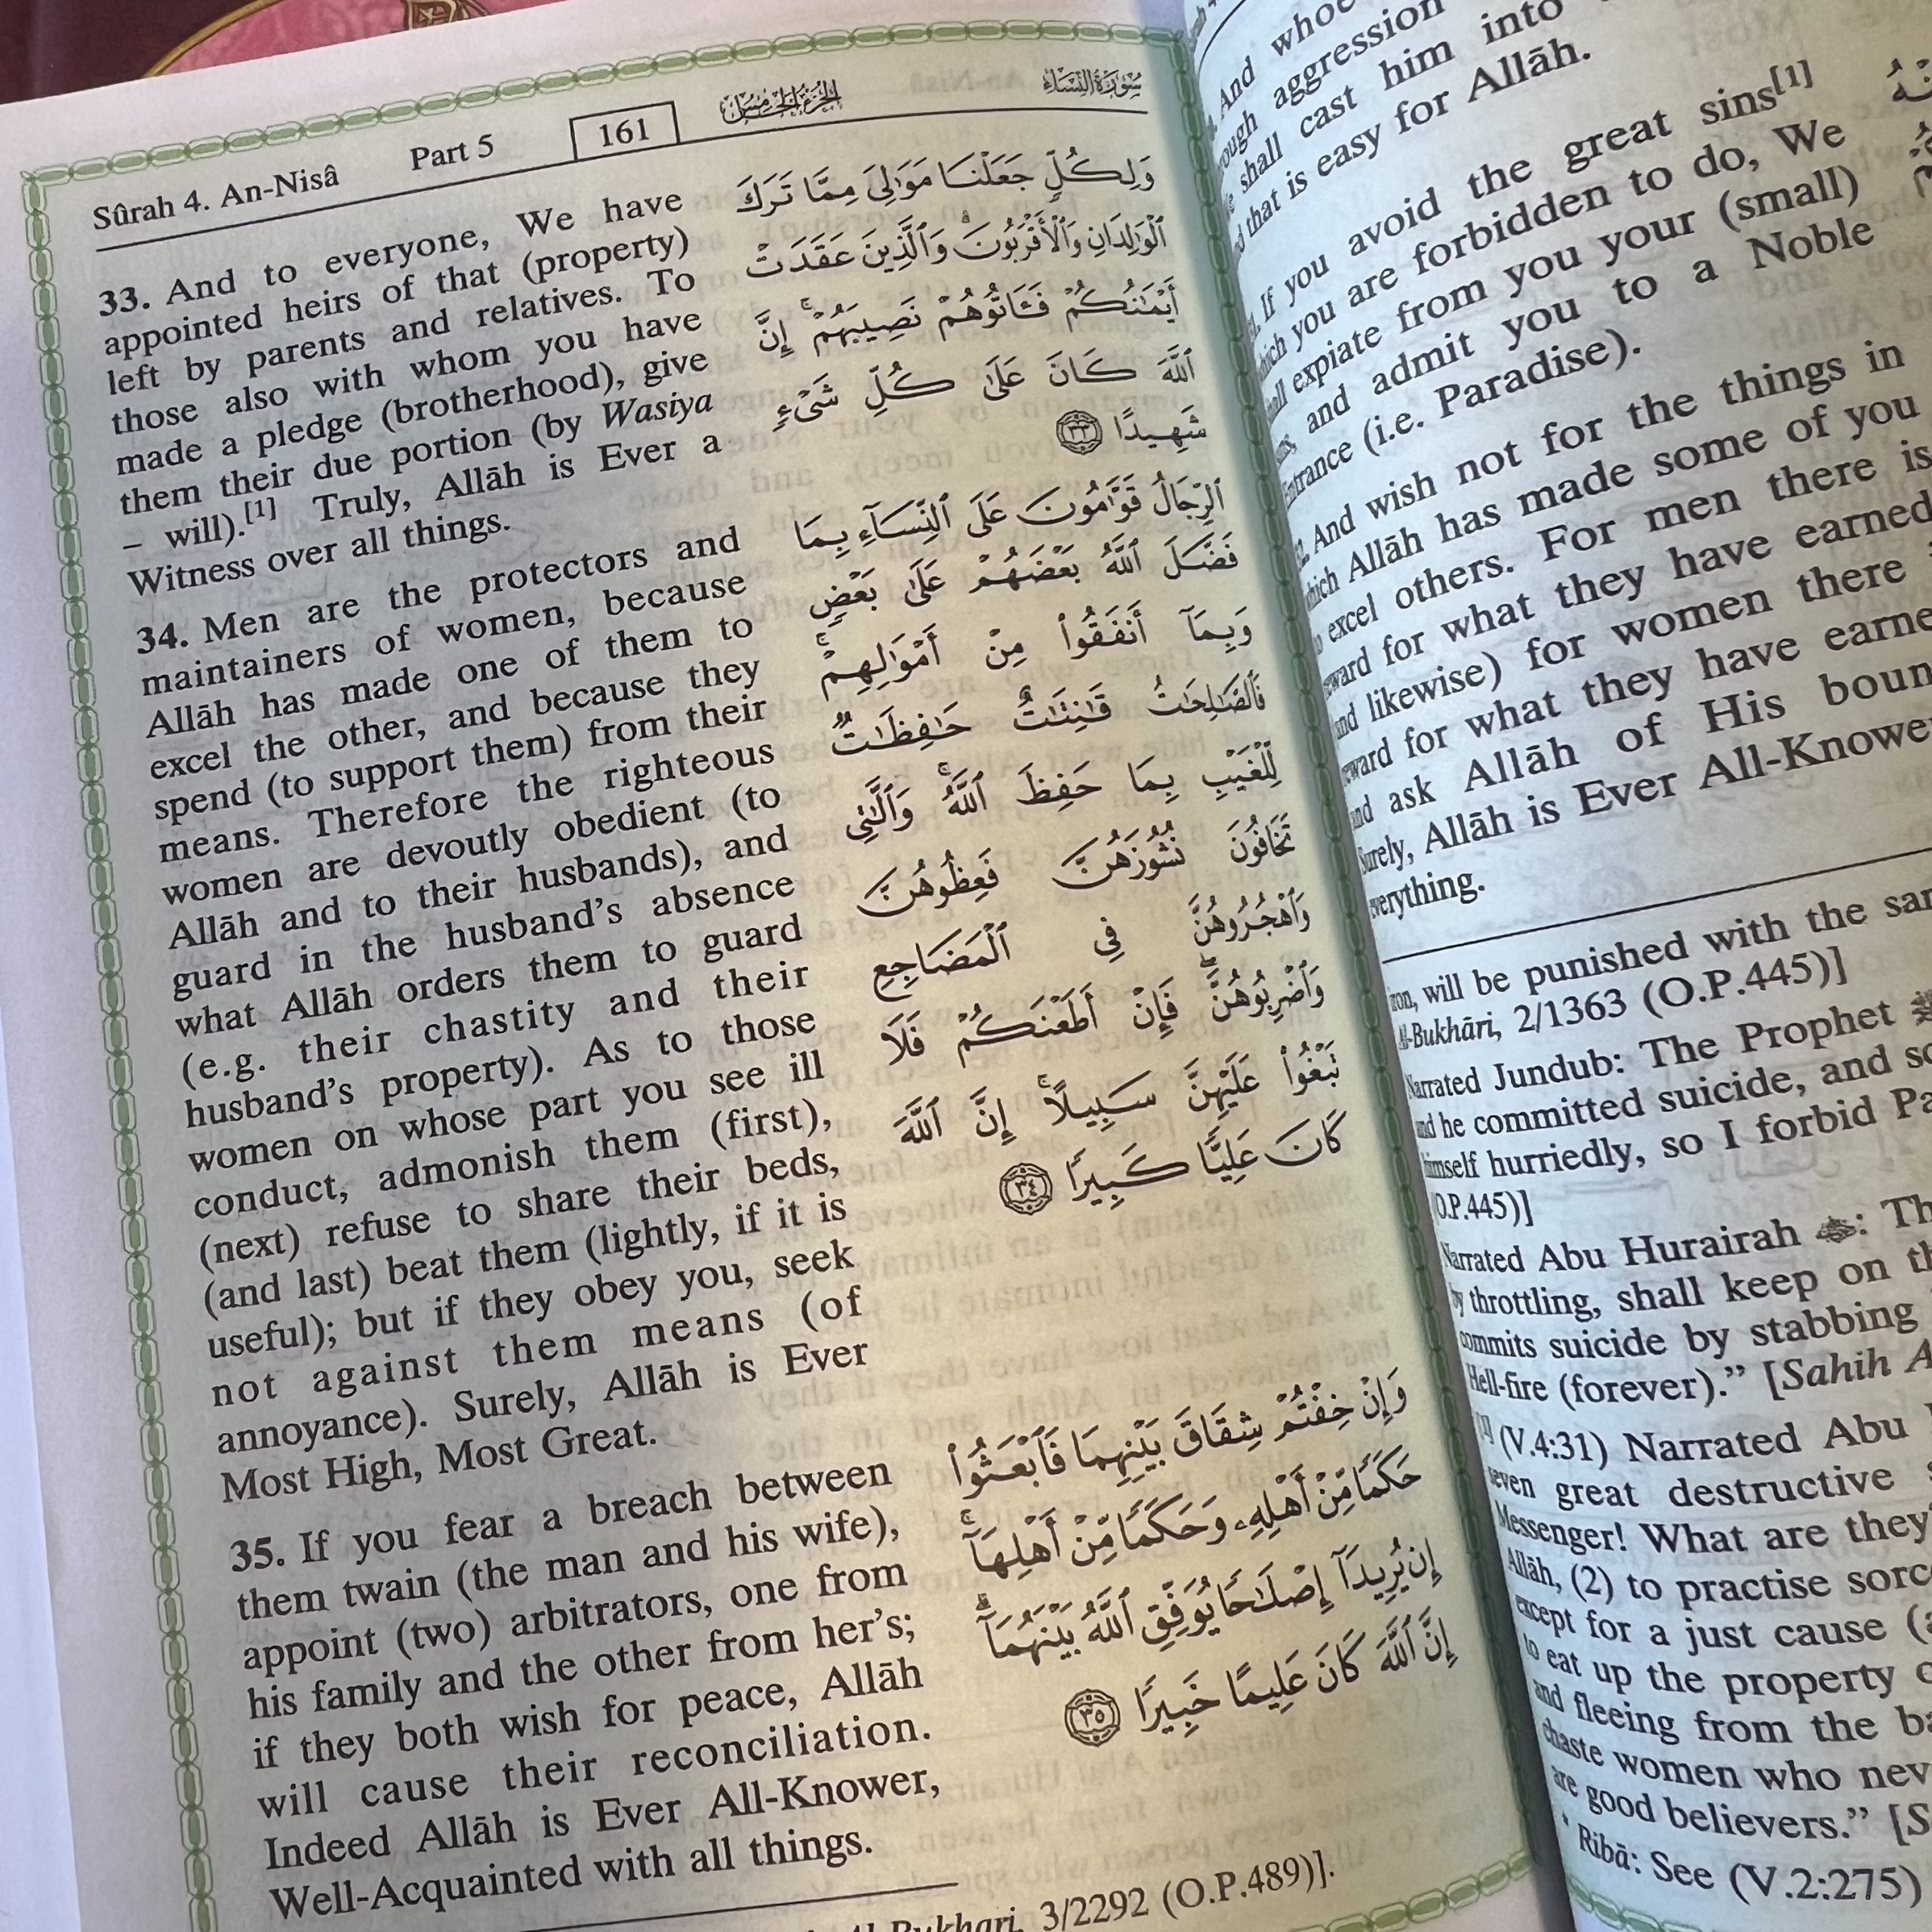 Sûrah 4. An-Nisâ Part 5 161 الجزء الخامس سورة النساء
33. And to everyone, We have
appointed heirs of that (property)
left by parents and relatives. To
those also with whom you have
made a pledge (brotherhood), give
them their due portion (by Wasiya
– will).[1] Truly, Allāh is Ever a
Witness over all things.
34. Men are the protectors and
maintainers of women, because
Allāh has made one of them to
excel the other, and because they
spend (to support them) from their
means. Therefore the righteous
women are devoutly obedient (to
Allāh and to their husbands), and
guard in the husband's absence
what Allāh orders them to guard
(e.g. their chastity and their
husband's property). As to those
women on whose part you see ill
conduct, admonish them (first),
(next) refuse to share their beds,
(and last) beat them (lightly, if it is
useful); but if they obey you, seek
not against them means (of
annoyance). Surely, Allāh is Ever
Most High, Most Great.
35. If you fear a breach between
them twain (the man and his wife),
appoint (two) arbitrators, one from
his family and the other from her's;
if they both wish for peace, Allāh
will cause their reconciliation.
Indeed Allāh is Ever All-Knower,
Well-Acquainted with all things.
وَلِكُلٍّ جَعَلْنَا مَوَٰلِىَ مِمَّا تَرَكَ
ٱلْوَٰلِدَانِ وَٱلْأَقْرَبُونَ ۚ وَٱلَّذِينَ عَقَدَتْ
أَيْمَٰنُكُمْ فَـَٔاتُوهُمْ نَصِيبَهُمْ ۚ إِنَّ
ٱللَّهَ كَانَ عَلَىٰ كُلِّ شَىْءٍ
شَهِيدًا ٣٣
ٱلرِّجَالُ قَوَّٰمُونَ عَلَى ٱلنِّسَآءِ بِمَا
فَضَّلَ ٱللَّهُ بَعْضَهُمْ عَلَىٰ بَعْضٍ
وَبِمَآ أَنفَقُوا۟ مِنْ أَمْوَٰلِهِمْ ۚ
فَٱلصَّٰلِحَٰتُ قَٰنِتَٰتٌ حَٰفِظَٰتٌ
لِّلْغَيْبِ بِمَا حَفِظَ ٱللَّهُ ۚ وَٱلَّٰتِى
تَخَافُونَ نُشُوزَهُنَّ فَعِظُوهُنَّ
وَٱهْجُرُوهُنَّ فِى ٱلْمَضَاجِعِ
وَٱضْرِبُوهُنَّ ۖ فَإِنْ أَطَعْنَكُمْ فَلَا
تَبْغُوا۟ عَلَيْهِنَّ سَبِيلًا ۗ إِنَّ ٱللَّهَ
كَانَ عَلِيًّا كَبِيرًا ٣٤
وَإِنْ خِفْتُمْ شِقَاقَ بَيْنِهِمَا فَٱبْعَثُوا۟
حَكَمًا مِّنْ أَهْلِهِۦ وَحَكَمًا مِّنْ أَهْلِهَآ ۚ
إِن يُرِيدَآ إِصْلَٰحًا يُوَفِّقِ ٱللَّهُ بَيْنَهُمَآ ۗ
إِنَّ ٱللَّهَ كَانَ عَلِيمًا خَبِيرًا ٣٥
3/2292 (O.P.489)].
And whoe
aggression
shall cast him into
that is easy for Allāh.
If you avoid the great sins[1]
which you are forbidden to do, We
shall expiate from you your (small)
and admit you to a Noble
Entrance (i.e. Paradise).
And wish not for the things in
which Allāh has made some of you
excel others. For men there is
reward for what they have earned
and likewise) for women there
reward for what they have earne
and ask Allāh of His boun
Surely, Allāh is Ever All-Knowe
everything.
will be punished with the sa
Al-Bukhāri, 2/1363 (O.P.445)]
Narrated Jundub: The Prophet
and he committed suicide, and so
himself hurriedly, so I forbid Pa
(O.P.445)]
Narrated Abu Hurairah : Th
by throttling, shall keep on th
commits suicide by stabbing
Hell-fire (forever)." [Sahih A
[1] (V.4:31) Narrated Abu
seven great destructive
Messenger! What are they
Allāh, (2) to practise sorc
except for a just cause (
to eat up the property
and fleeing from the ba
chaste women who nev
are good believers." [S
* Ribā: See (V.2:275)